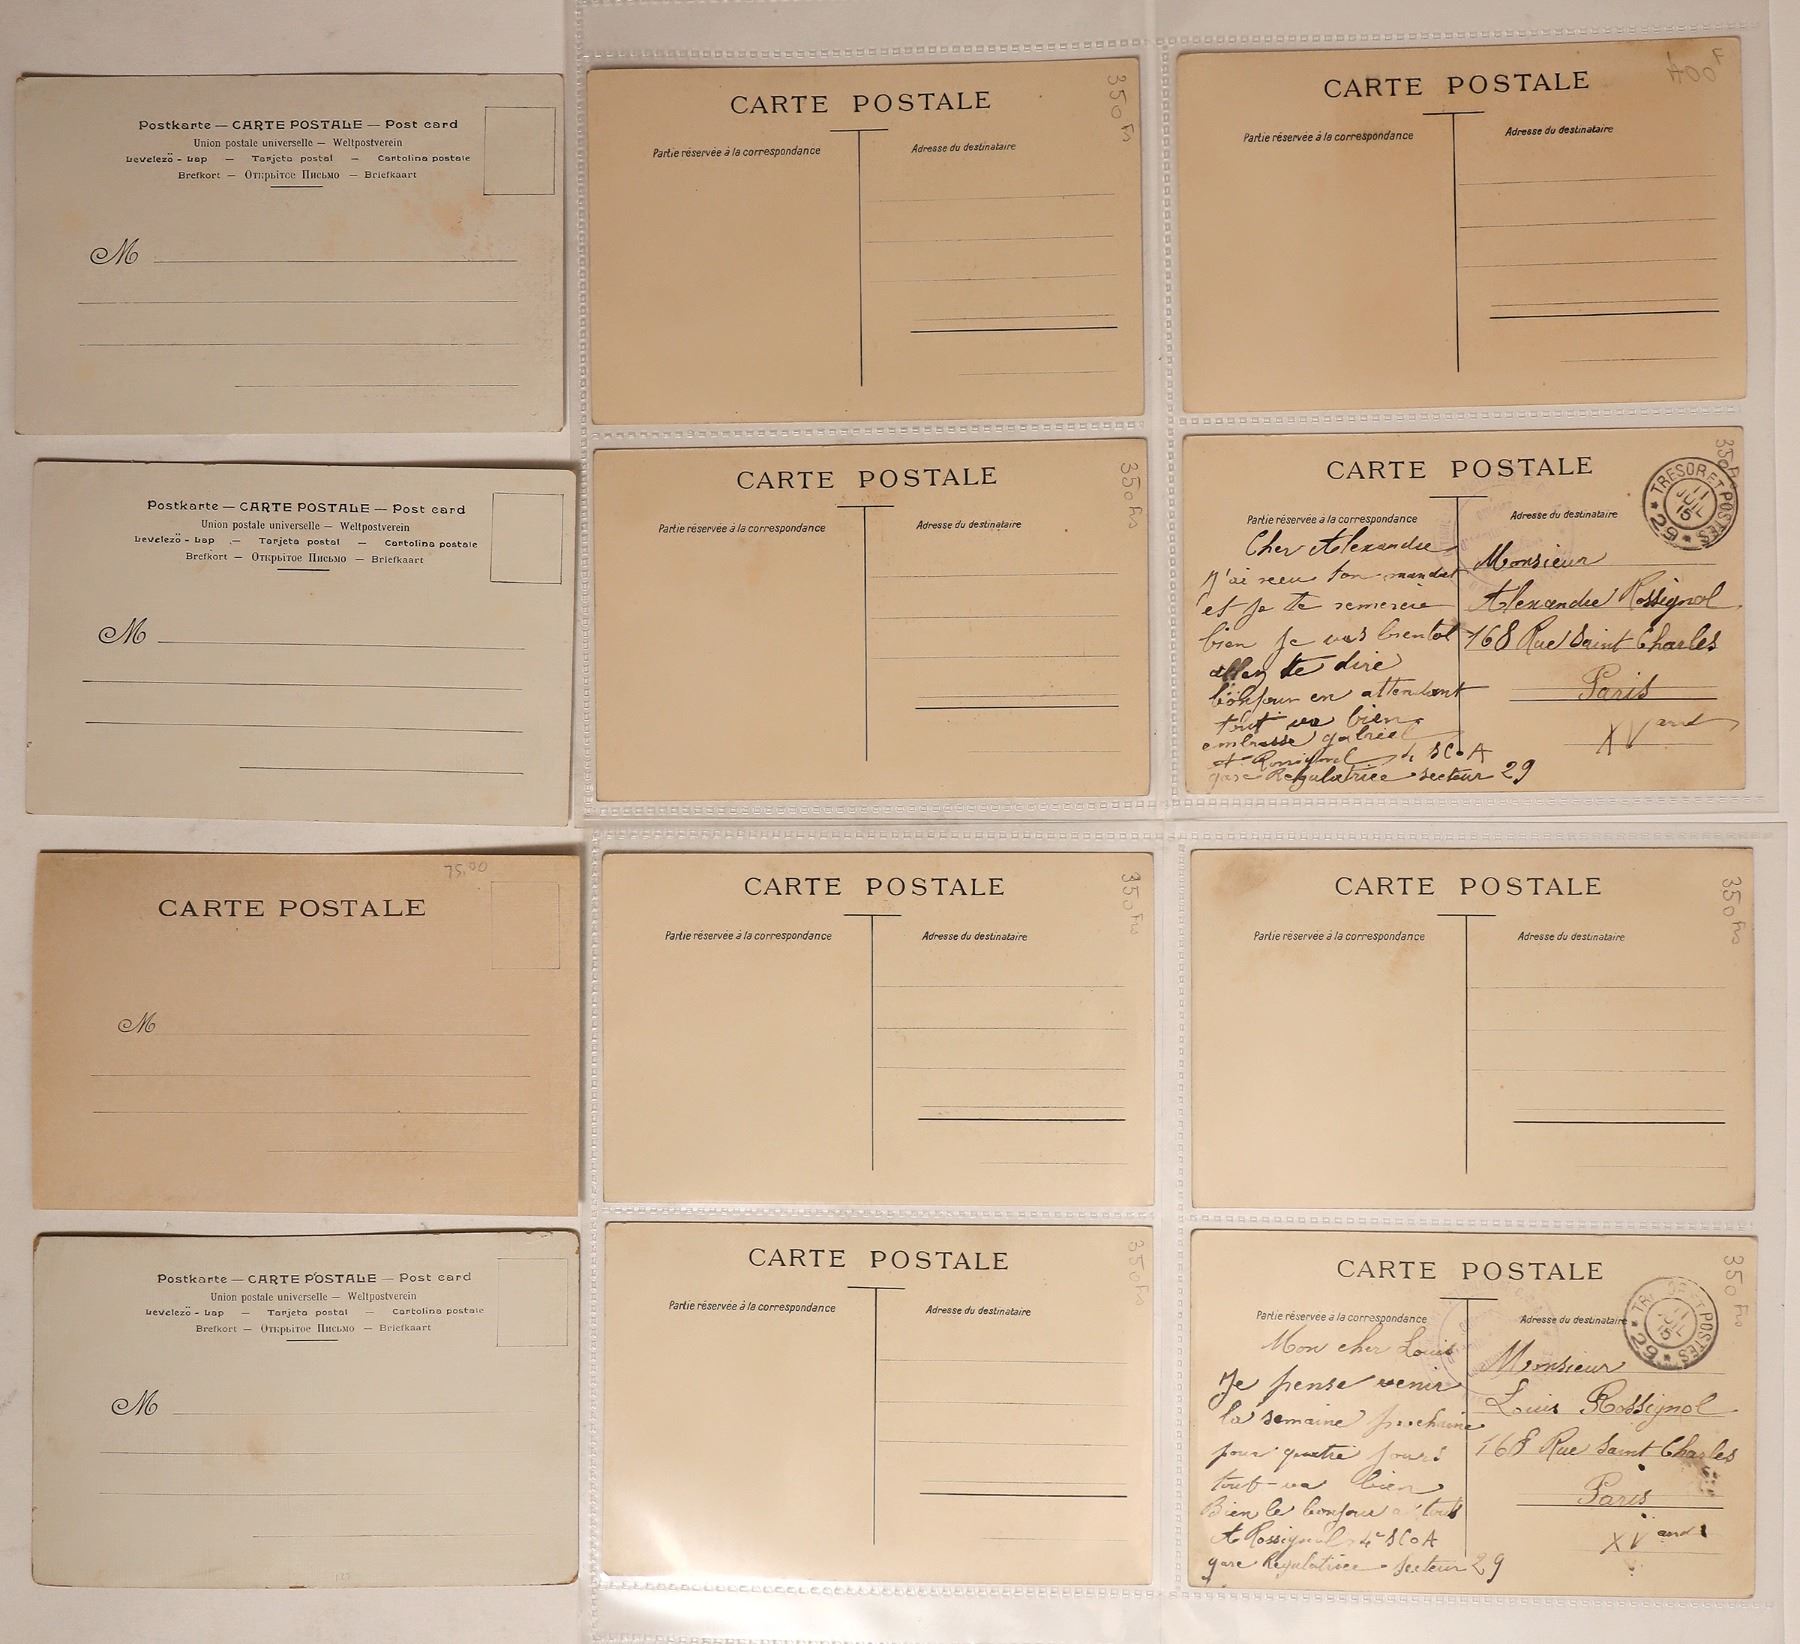 Postkarte — CARTE POSTALE — Post card
Union postale universelle — Weltpostverein
Levelező - Lap — Tarjeta postal — Cartolina postale
Brefkort — Открытое Письмо — Briefkaart
M
CARTE POSTALE
350 Frs
Partie réservée à la correspondance
Adresse du destinataire
CARTE POSTALE
400 F
Partie réservée à la correspondance
Adresse du destinataire
Postkarte — CARTE POSTALE — Post card
Union postale universelle — Weltpostverein
Levelező - Lap — Tarjeta postal — Cartolina postale
Brefkort — Открытое Письмо — Briefkaart
M
CARTE POSTALE
350 Frs
Partie réservée à la correspondance
Adresse du destinataire
CARTE POSTALE
350 Frs
TRESOR ET POSTES
11
JUIL
15
* 29 *
Partie réservée à la correspondance
Adresse du destinataire
Cher Alexandre
J'ai reçu ton mandat
et je te remercie
bien je vas bientot
aller te dire
bonjour en attendant
tout va bien
embrasse gabriel
A Rossignol 4e SCOA
gare Regulatrice secteur 29
Monsieur
Alexandre Rossignol
168 Rue Saint Charles
Paris
XV arrd
CARTE POSTALE
75,00
M
CARTE POSTALE
350 Frs
Partie réservée à la correspondance
Adresse du destinataire
CARTE POSTALE
350 Frs
Partie réservée à la correspondance
Adresse du destinataire
Postkarte — CARTE POSTALE — Post card
Union postale universelle — Weltpostverein
Levelező - Lap — Tarjeta postal — Cartolina postale
Brefkort — Открытое Письмо — Briefkaart
M
CARTE POSTALE
350 Frs
Partie réservée à la correspondance
Adresse du destinataire
CARTE POSTALE
350 Frs
TRESOR ET POSTES
11
JUIL
15
* 29 *
Partie réservée à la correspondance
Adresse du destinataire
Mon cher Louis
Je pense venir
la semaine prochaine
pour quatre jours
tout va bien
Bien le bonjour a tous
A Rossignol 4e SCOA
gare Regulatrice secteur 29
Monsieur
Louis Rossignol
168 Rue Saint Charles
Paris
XV arrd